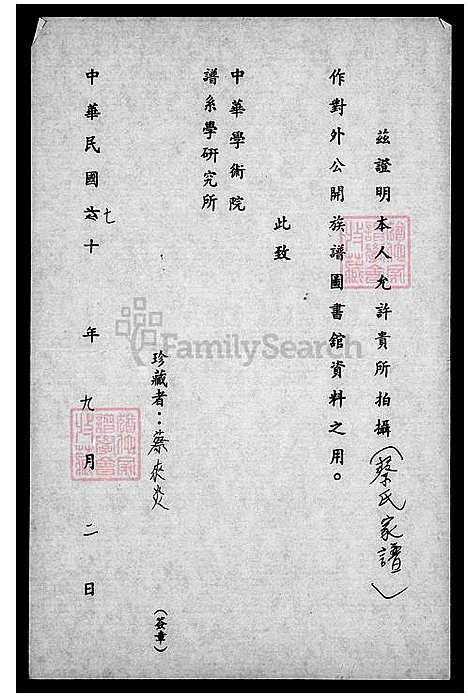 茲證明本人允許貴所拍攝（蔡氏家譜）
作對外公開族譜圖書館資料之用。
此致
中華學術院
譜系學研究所
珍藏者：蔡來炎
（簽章）
中華民國七十年九月二日
FamilySearch